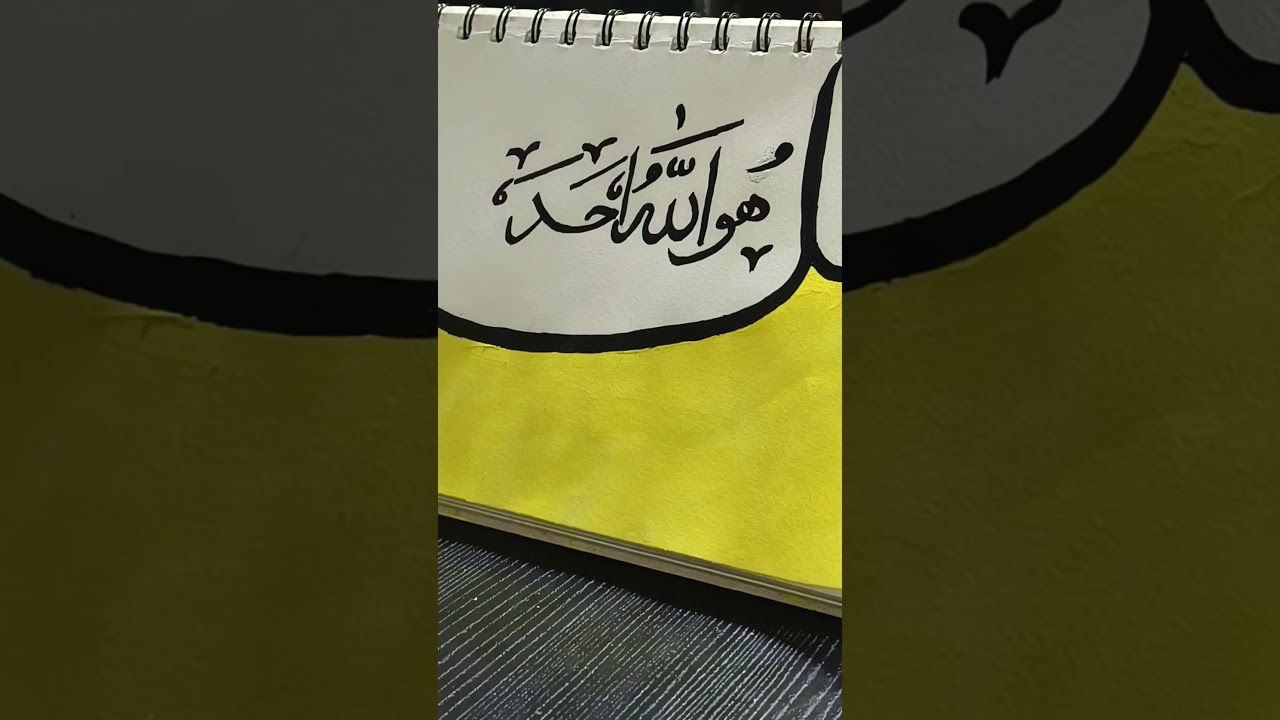 هُوَ اللّٰهُ اَحَدٌ